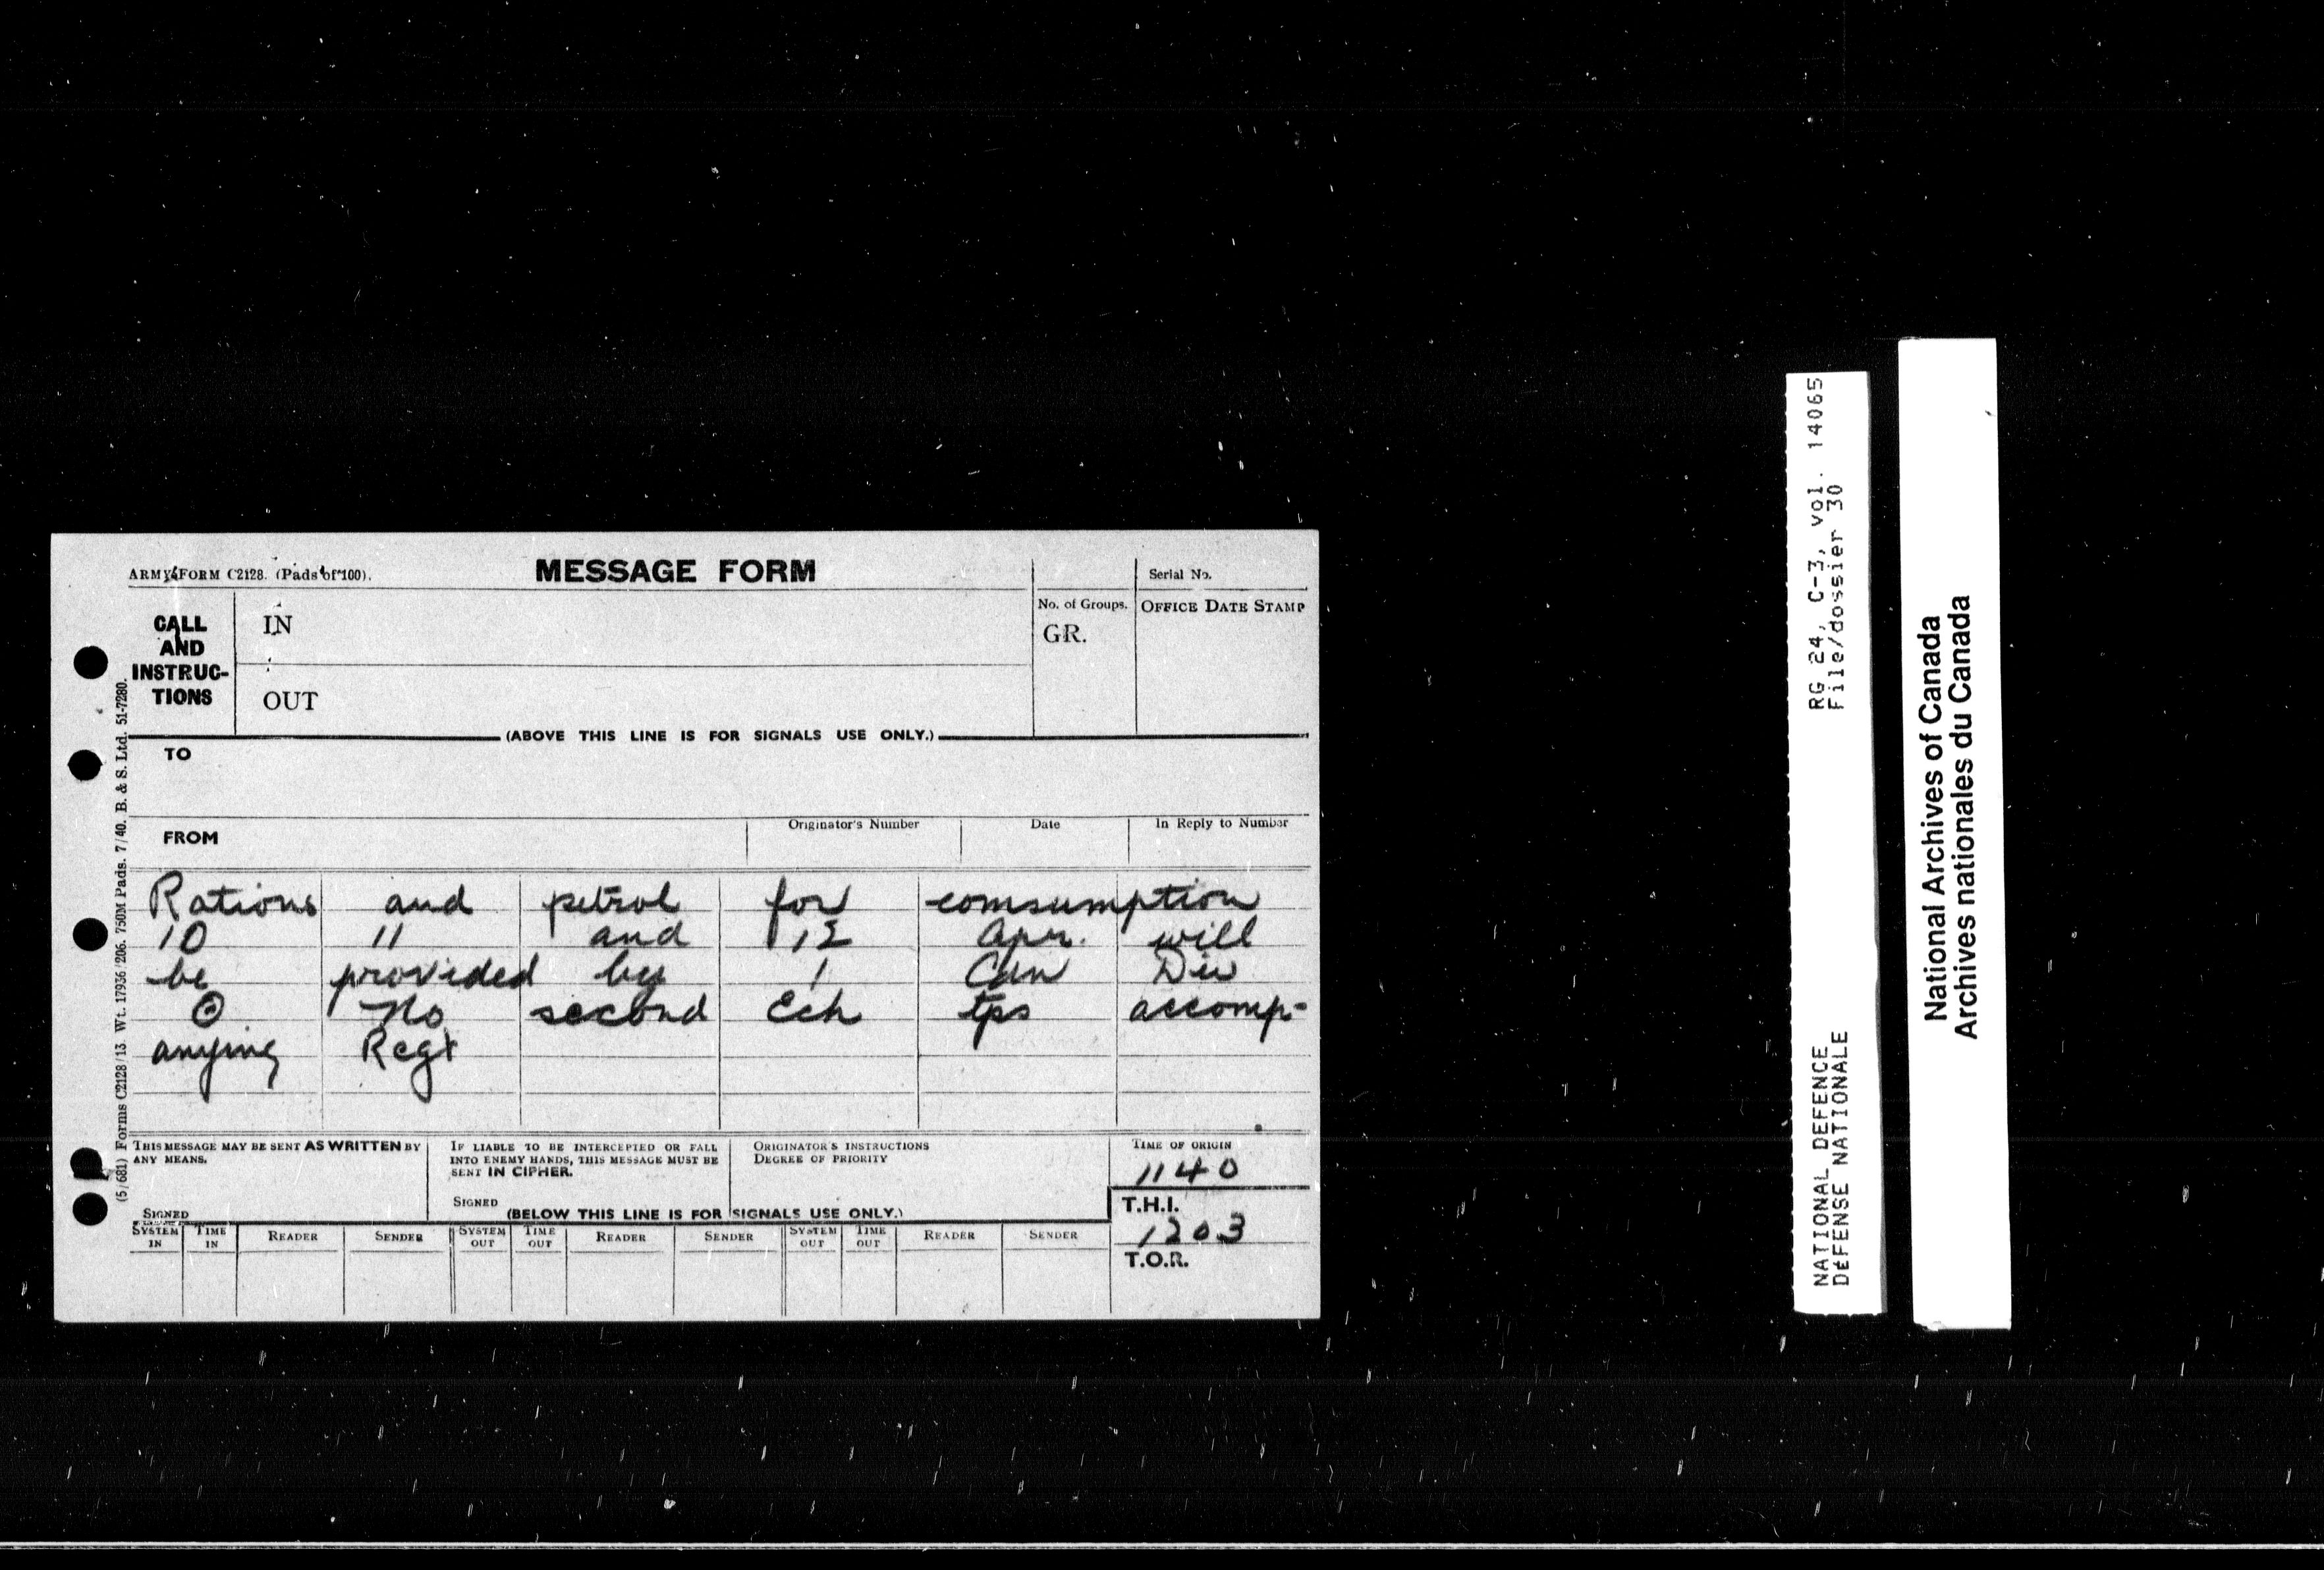 ARMY FORM C2128. (Pads of 100).
MESSAGE FORM
Serial No.
CALL AND INSTRUC-TIONS
IN
No. of Groups.
GR.
OFFICE DATE STAMP
OUT
(ABOVE THIS LINE IS FOR SIGNALS USE ONLY.)
TO
FROM
Originator's Number
Date
In Reply to Number
Rations and petrol for comsumption
10 11 and 12 Apr. will
be provided by 1 Cdn Div
⊙ No second Ech tps accomp-
anying Regt
THIS MESSAGE MAY BE SENT AS WRITTEN BY
ANY MEANS.
SIGNED
IF LIABLE TO BE INTERCEPTED OR FALL
INTO ENEMY HANDS, THIS MESSAGE MUST BE
SENT IN CIPHER.
SIGNED
ORIGINATOR'S INSTRUCTIONS
DEGREE OF PRIORITY
TIME OF ORIGIN
1140
T.H.I.
1203
T.O.R.
(BELOW THIS LINE IS FOR SIGNALS USE ONLY.)
SYSTEM IN
TIME IN
READER
SENDER
SYSTEM OUT
TIME OUT
READER
SENDER
SYSTEM OUT
TIME OUT
READER
SENDER
(5/681) Forms C2128/13 Wt. 17936/206. 750M Pads. 7/40. B. & S. Ltd. 51-7280.
NATIONAL DEFENCE RG 24, C-3, vol. 14065
DÉFENSE NATIONALE File/dossier 30
National Archives of Canada
Archives nationales du Canada